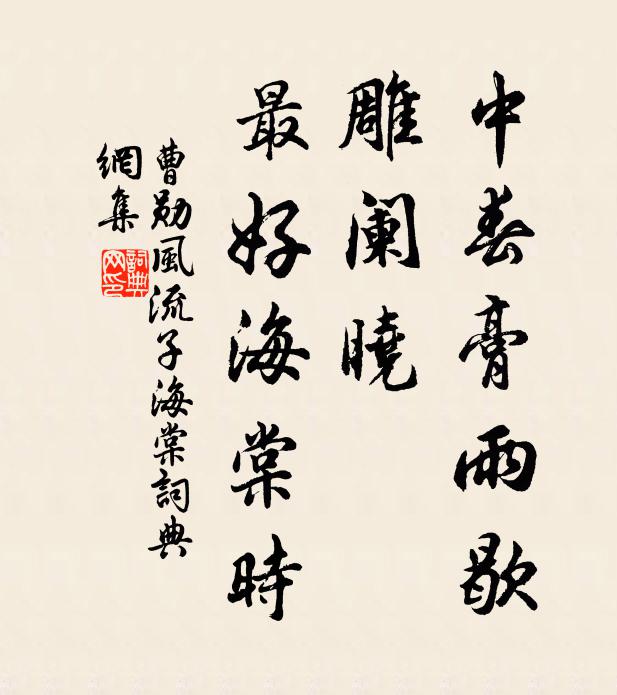 中春膏雨歇
雕阑曉
最好海棠時
曹勛風流子海棠詞典
網集
詞典
网印